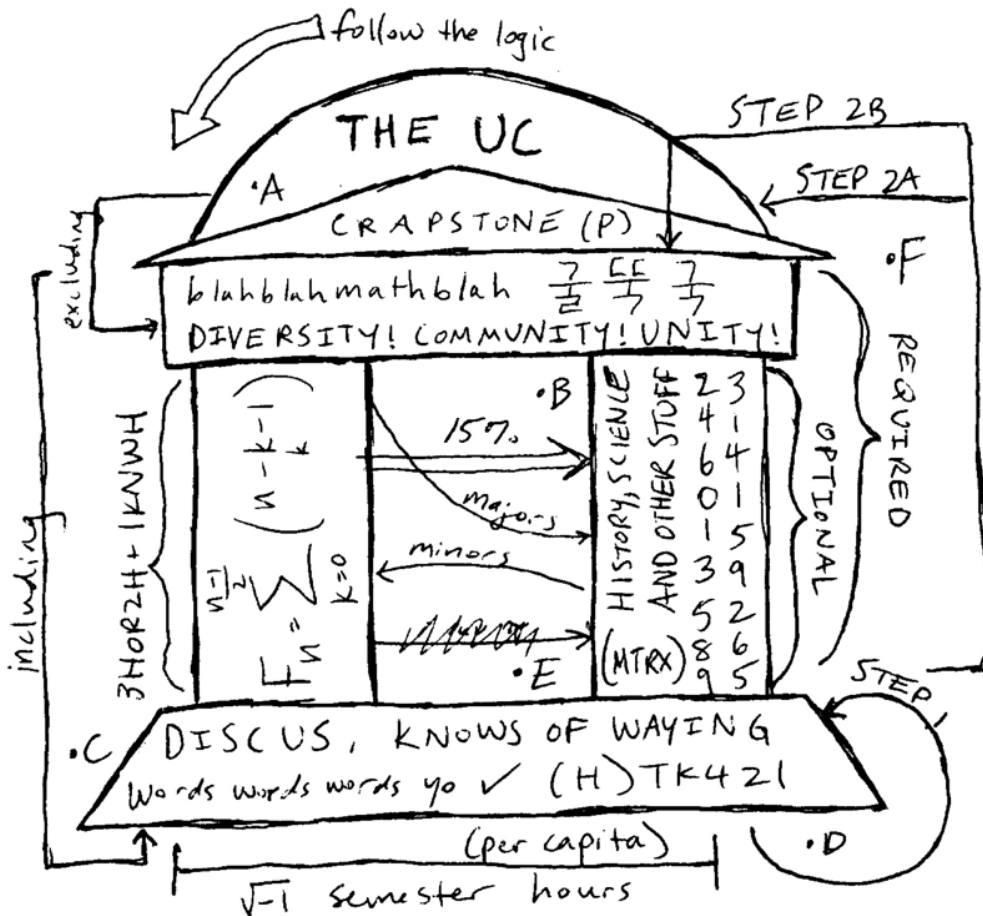 follow the logic
THE UC
STEP 2B
STEP 2A
•A
CRAPSTONE (P)
•F
excluding
blahblahmathblah
DIVERSITY! COMMUNITY! UNITY!
REQUIRED
including
3HOR2H + 1KNWH
F_n = Σ (n-k-1 k)
n-1
2
k=0
•B
15%
majors
minors
•E
HISTORY, SCIENCE
AND OTHER STUFF
(MTRX)
2 3
4 1
6 4
0 1
1 5
3 9
5 2
8 6
9 5
OPTIONAL
STEP 1
•C
DISCUS, KNOWS OF WAYING
Words words words yo ✓ (H) TK421
(per capita)
•D
√-1 semester hours